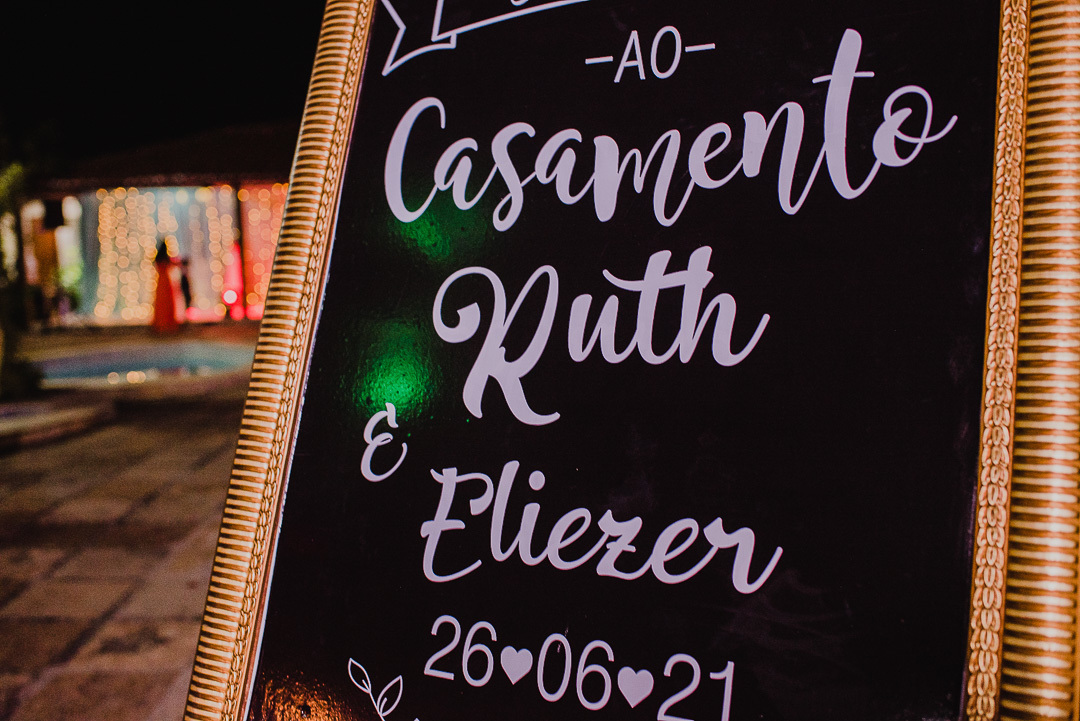 -AO-
Casamento
Ruth
&
Eliezer
26♥06♥21